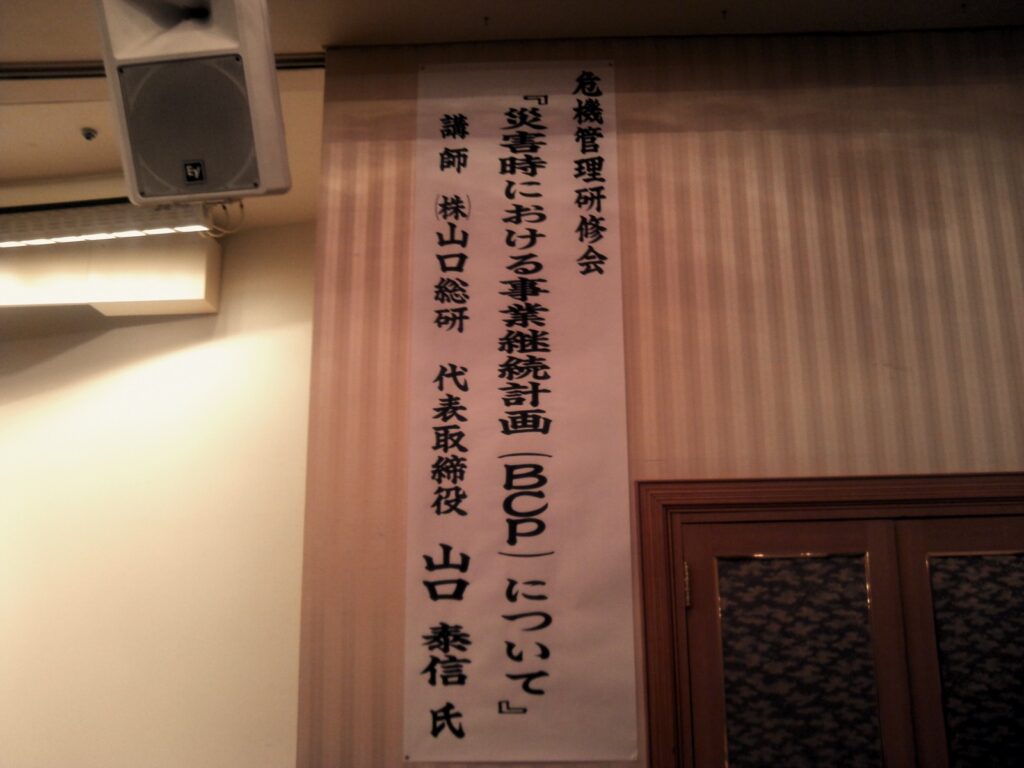 危機管理研修会
『災害時における事業継続計画(BCP)について』
講師 ㈱山口総研 代表取締役 山口 泰信 氏
EV